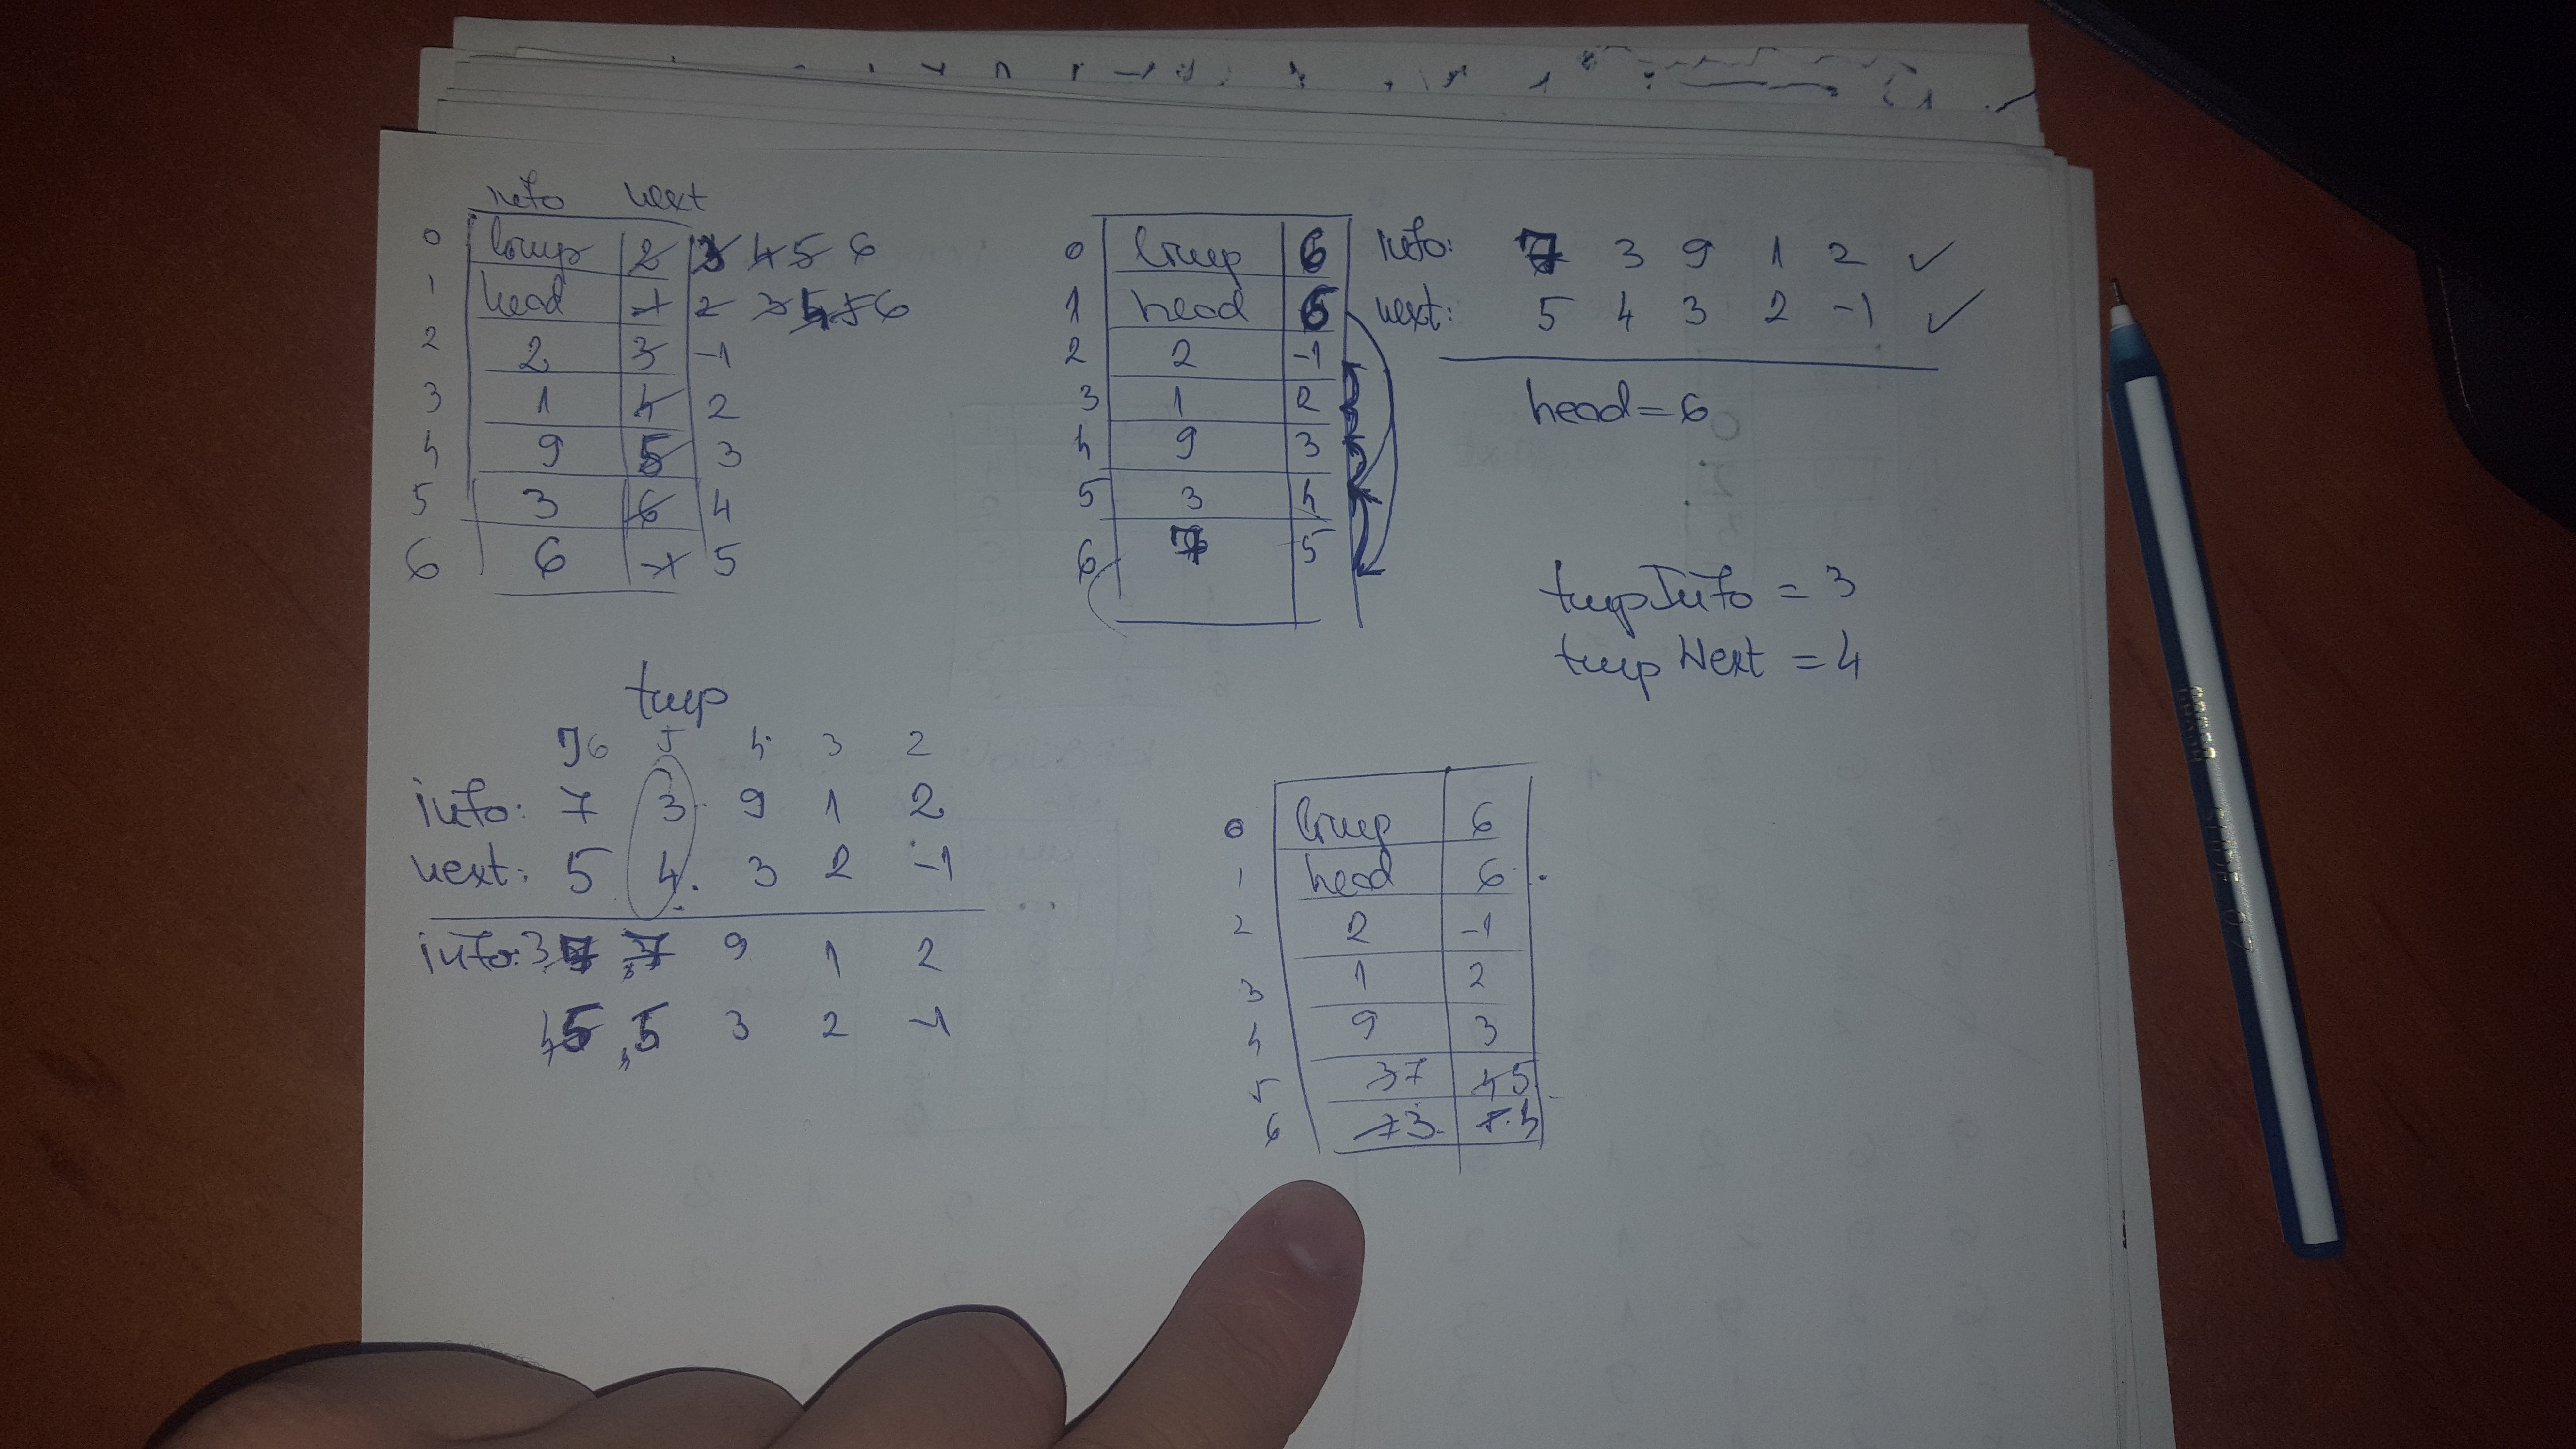 info next
0 2 3 4 5 6
1 head -1 2 3 4 5 6
2 2 3 -1
3 1 4 2
4 9 5 3
5 3 6 4
6 6 -1 5
0 6
1 head 6
2 2 -1
3 1 2
4 9 3
5 3 4
6 7 5
info: 7 3 9 1 2 ✓
next: 5 4 3 2 -1 ✓
head = 6
tmpInfo = 3
tmpNext = 4
tmp
6 5 4 3 2
info: 7 3 9 1 2
next: 5 4 3 2 -1
info: 3 7 9 1 2
4 5 5 3 2 -1
0 6
1 head 6
2 2 -1
3 1 2
4 9 3
5 3 7 4 5
6 7 3 5 4